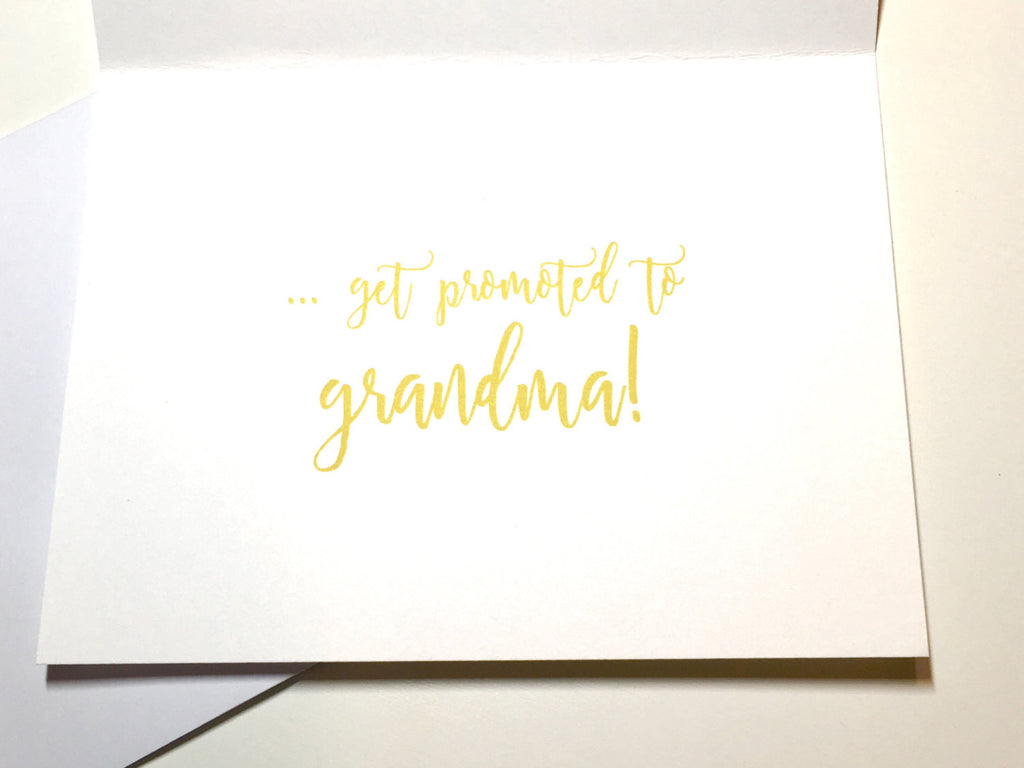 ... get promoted to
grandma!